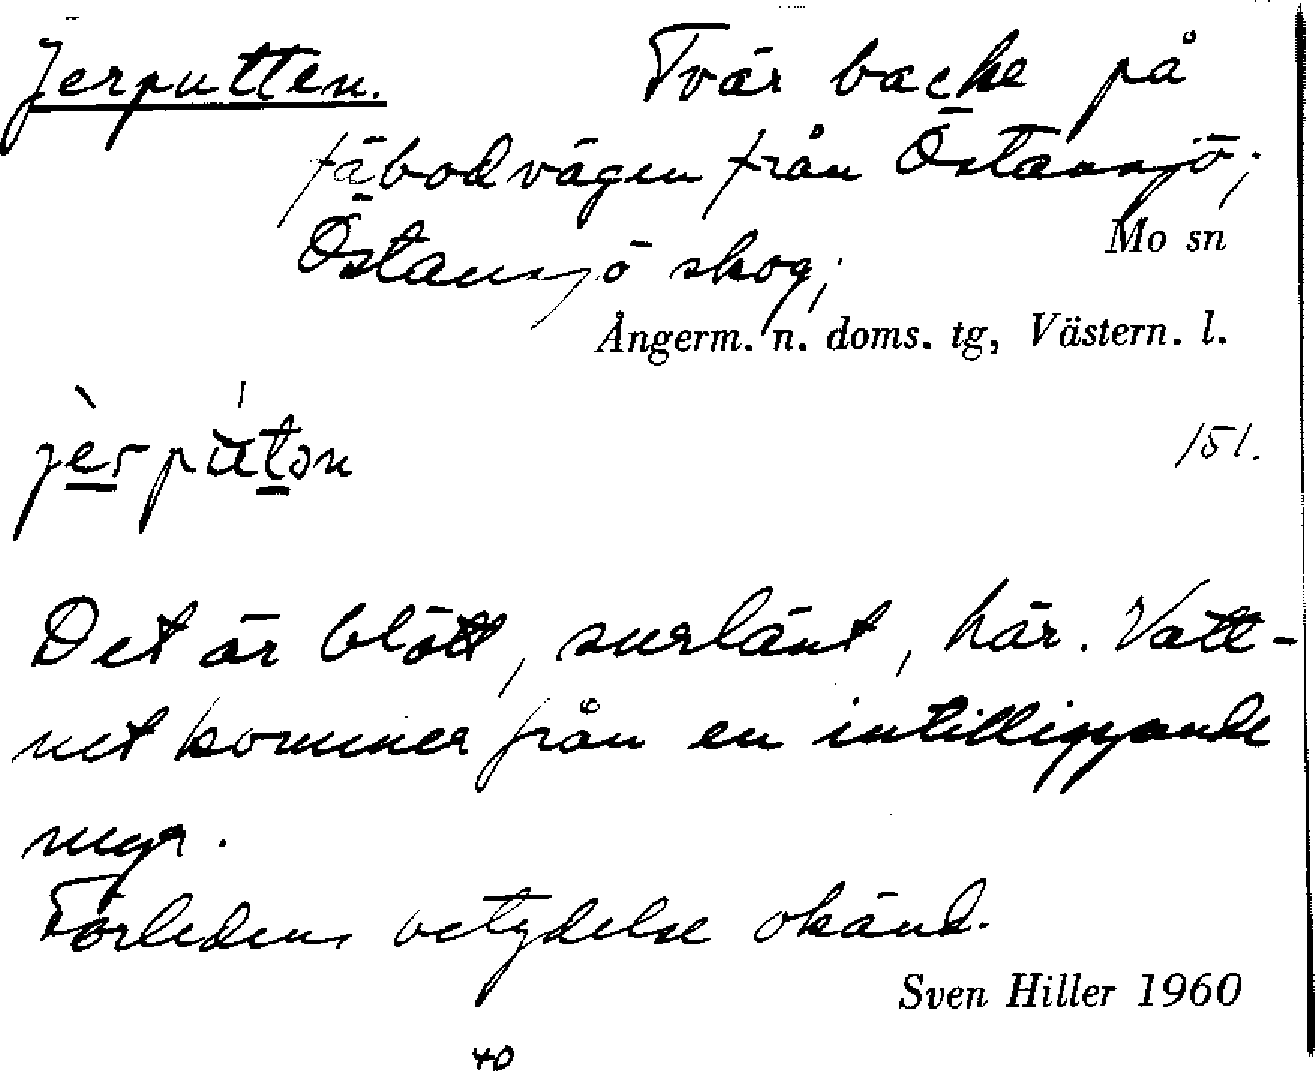 Jerputten. Tvär backe på
fäbodvägen från Östansjö;
Mo sn
Östansjö skog;
Ångerm. n. doms. tg, Västern. l.
151.
Det är blött, surlänt, här. Vatt-
net kommer från en intilliggande
myr.
Förledens betydelse okänd.
Sven Hiller 1960
40